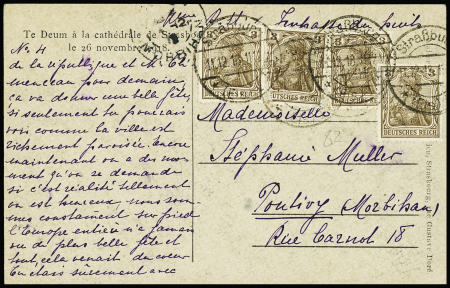 Te Deum à la cathédrale de Strasbourg
le 26 novembre 1918.
No 4
de la république et M. Clé
menceau pour demain,
ça va donner une belle fête,
si seulement tu pouvais
voir comme la ville est
richement pavoisée. Encore
maintenant on a des mo
ment qu'on se demande
si c'est réalité tellement
on est heureux nous som-
mes constament sur pied
l'Europe entière n'a jamais
vu de plus belle fête et
tout cela venait du coeur
Tu étais sûrement avec
Straßburg
3 3 3 3
DEUTSCHES REICH
DEUTSCHES REICH
DEUTSCHES REICH
DEUTSCHES REICH
Mademoiselle
Stéphanie Muller
Pontivy (Morbihan)
Rue Carnot 18
Strasbourg, Gustave Doré